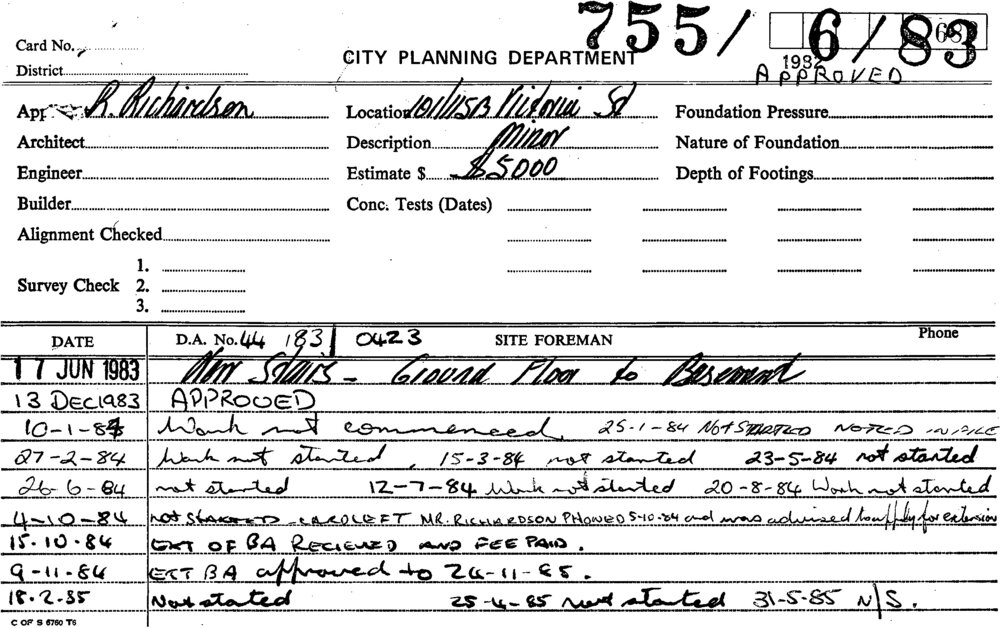 755/6/83
Card No.
CITY PLANNING DEPARTMENT
1982
District
APPROVED
R. Richardson Location 101/115B Victoria St Foundation Pressure
Architect Description Minor Nature of Foundation
Engineer Estimate $ $5000 Depth of Footings
Builder Conc. Tests (Dates)
Alignment Checked
1.
Survey Check 2.
3.
DATE D.A. No. 44 183 0423 SITE FOREMAN Phone
17 JUN 1983 New Stairs - Ground Floor to Basement
13 DEC 1983 APPROVED
10-1-84 Work not commenced. 25-1-84 NOT STARTED NOTED IN FILE
27-2-84 Work not started, 15-3-84 not started 23-5-84 not started
26-6-84 not started 12-7-84 Work not started 20-8-84 Work not started
4-10-84 NOT STARTED - CARD LEFT MR. RICHARDSON PHONED 5-10-84 and was advised to apply for extension
15.10.84 EXT OF BA RECIEVED AND FEE PAID.
9-11-84 EXT BA approved to 24-11-85.
18.2.85 Not started 25-4-85 not started 31-5-85 N/S.
C OF S 6760 T6